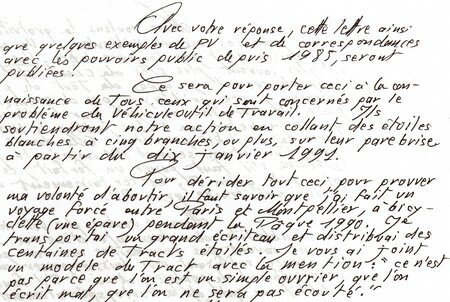 Avec votre réponse, cette lettre ainsi
que quelques exemples de PV et de correspondances
avec les pouvoirs public depuis 1985, seront
publiées.
Ce sera pour porter ceci à la con-
naissance de tous ceux qui sont concernés par le
problème du Véhicule Outil de Travail. Ils
soutiendront notre action en collant des étoiles
blanches à cinq branches, ou plus, sur leur pare brise
à partir du dix janvier 1991.
Pour dérider tout ceci pour prouver
ma volonté d'aboutir, il faut savoir que j'ai fait un
voyage forcé entre Paris et Montpellier à bicy-
clette (une épave) pendant la Pâque 1990. Je
transportai un grand écriteau et distribuai des
centaines de Tracts étoilés. Je vous ai joint
un modèle du Tract avec la mention : "ce n'est
pas parce que l'on est un simple ouvrier, que l'on
écrit mal, que l'on ne sera pas écouté."